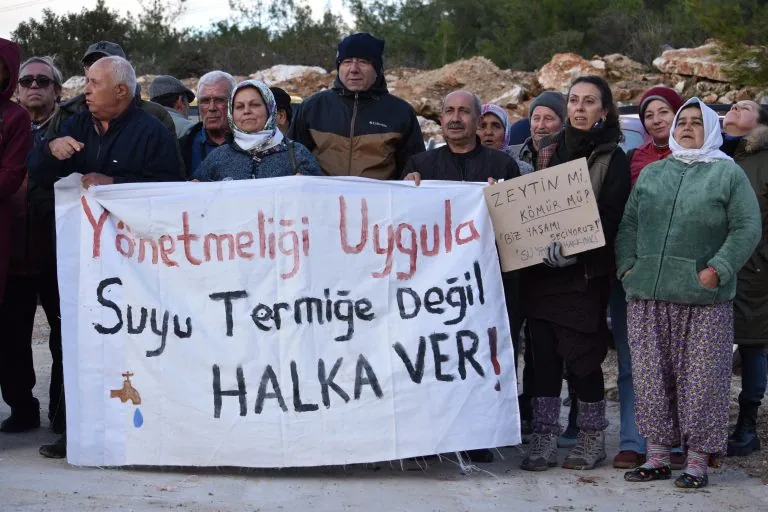 Yönetmeliği Uygula
Suyu Termiğe Değil
HALKA VER!
ZEYTİN Mİ
KÖMÜR MÜ?
"BİZ YAŞAMI
SEÇİYORUZ!
Columbia